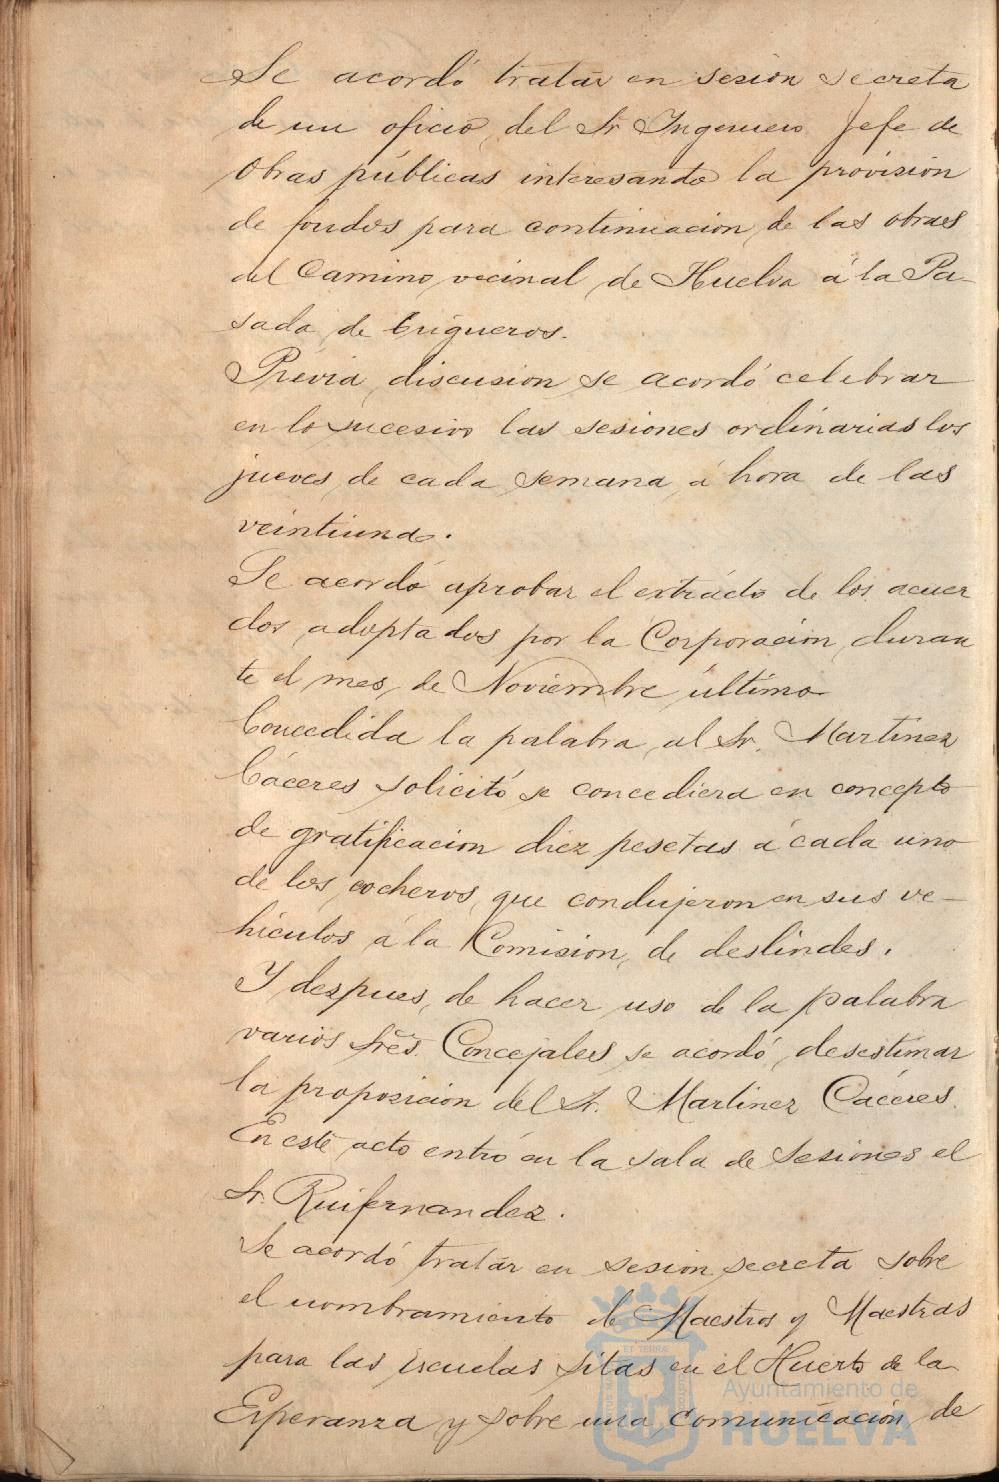 Se acordó tratar en sesión secreta
de un oficio del Sr Ingeniero Jefe de
Obras públicas interesando la provisión
de fondos para continuacion de las obras
del Camino vecinal de Huelva á la Pa-
sada de Trigueros.
Previa discusion se acordó celebrar
en lo sucesivo las sesiones ordinarias los
jueves de cada semana á hora de las
veintiuna.
Se acordó aprobar el extracto de los acuer
dos adoptados por la Corporación duran
te el mes de Noviembre último
Concedida la palabra al Sr. Martinez
Cáceres solicitó se concediera en concepto
de gratificacion diez pesetas á cada uno
de los cocheros que condujeron en sus ve-
hículos á la Comision de deslindes.
Y despues de hacer uso de la palabra
varios Sres. Concejales se acordó desestimar
la proposicion del Sr. Martinez Cáceres.
En este acto entró en la sala de sesiones el
Sr. Ruifernandez.
Se acordó tratar en sesion secreta sobre
el nombramiento de Maestros y Maestras
para las Escuelas sitas en el Huerto de la
Esperanza y sobre una comunicación de
Ayuntamiento de
HUELVA